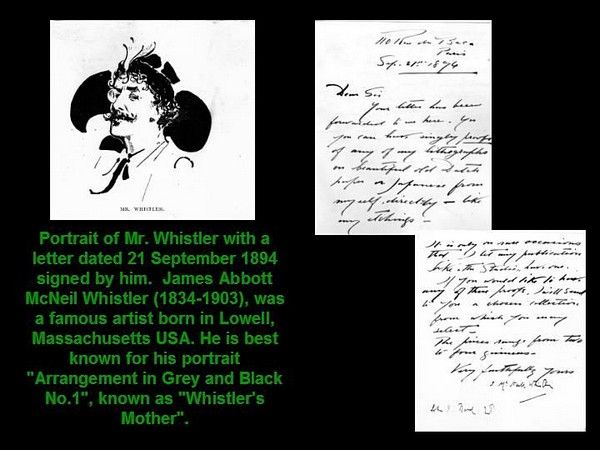 MR. WHISTLER.
Portrait of Mr. Whistler with a
letter dated 21 September 1894
signed by him.  James Abbott
McNeil Whistler (1834-1903), was
a famous artist born in Lowell,
Massachusetts USA. He is best
known for his portrait
"Arrangement in Grey and Black
No.1", known as "Whistler's
Mother".
110 Rue du Bac
Paris
Sep. 21st 1894
Dear Sir
Your letter has been
forwarded to me here. You
you can have singly proofs
of any of my lithographs
on beautiful old Dutch
paper or Japanese from
myself, directly - like
my etchings -
It is only on rare occasions
that I let any publication
like the Studio, have one.
If you would like to have
any of these proofs, I will send
to you a chosen collection
from which you may
select -
The prices range from two
to four guineas -
Very faithfully yours
J. McNeill Whistler